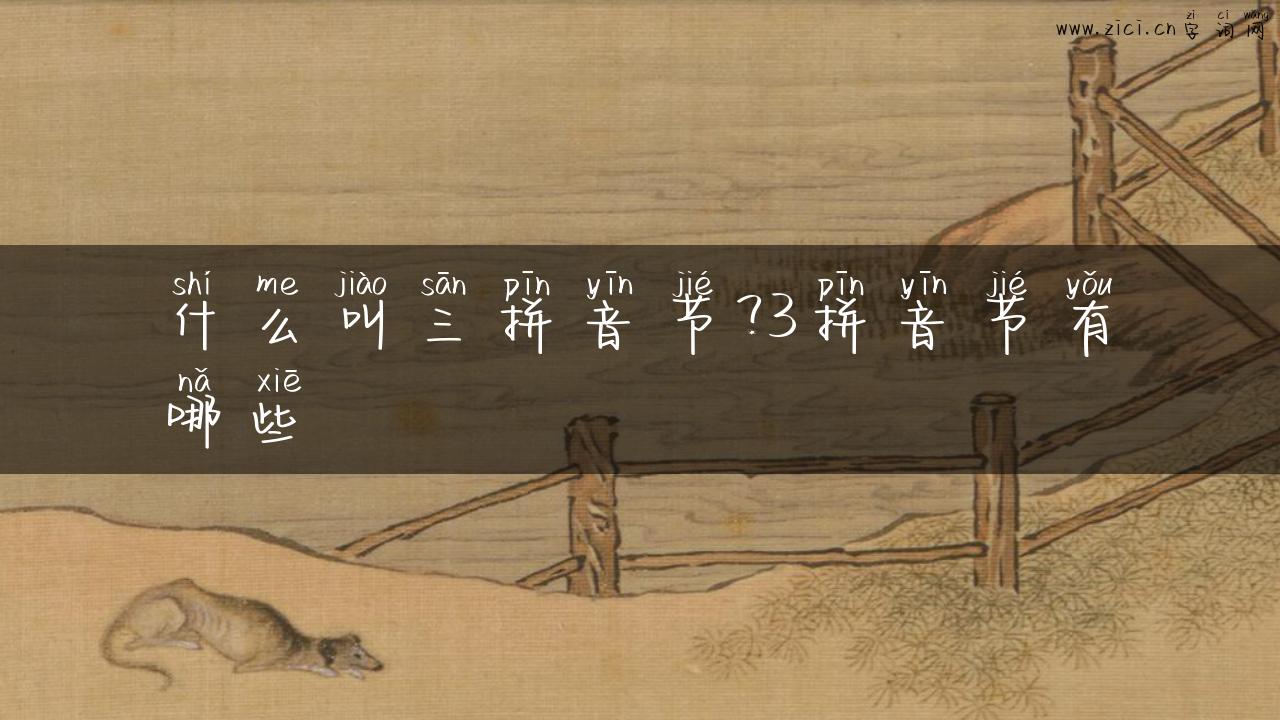 zi ci wang
www.zici.cn字词网
shí me jiào sān pīn yīn jié pīn yīn jié yǒu
什么叫三拼音节?3拼音节有
nǎ xiē
哪些